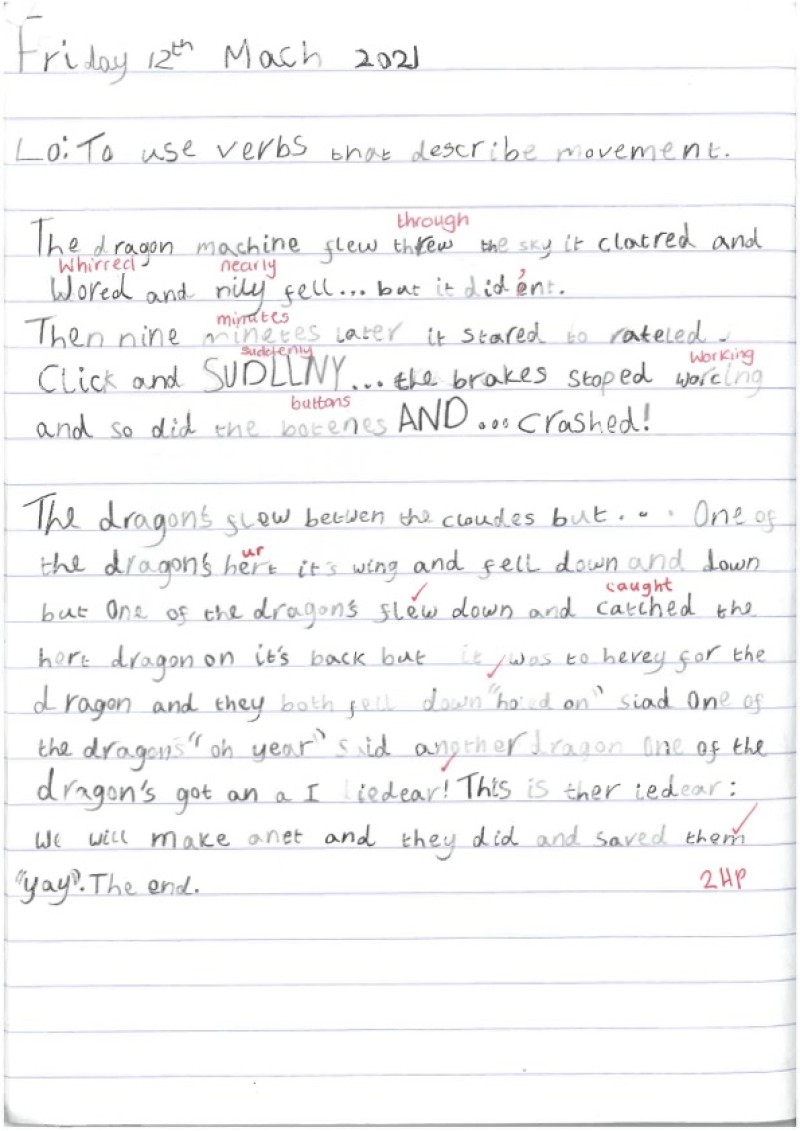 Friday 12th Mach 2021
Lo: To use verbs that describe movement.
through
The dragon machine flew threw the sky it clatred and
Whirred nearly
Wored and nily fell... but it did'ent.
minutes
Then nine minetes later it stared to rateled.
suddenly working
Click and SUDLLNY... the brakes stoped worcing
buttons
and so did the botenes AND ... crashed!
The dragon's flew betwen the cloudes but... One of
ur
the dragon's hert it's wing and fell down and down
caught
but One of the dragon's flew down and catched the
hert dragon on it's back but it was to hevey for the
dragon and they both fell down "holed on" siad One of
the dragons "oh year" said another dragon One of the
dragon's got an a I iedear! This is ther iedear:
We will make anet and they did and saved them
"yay". The end.
2HP